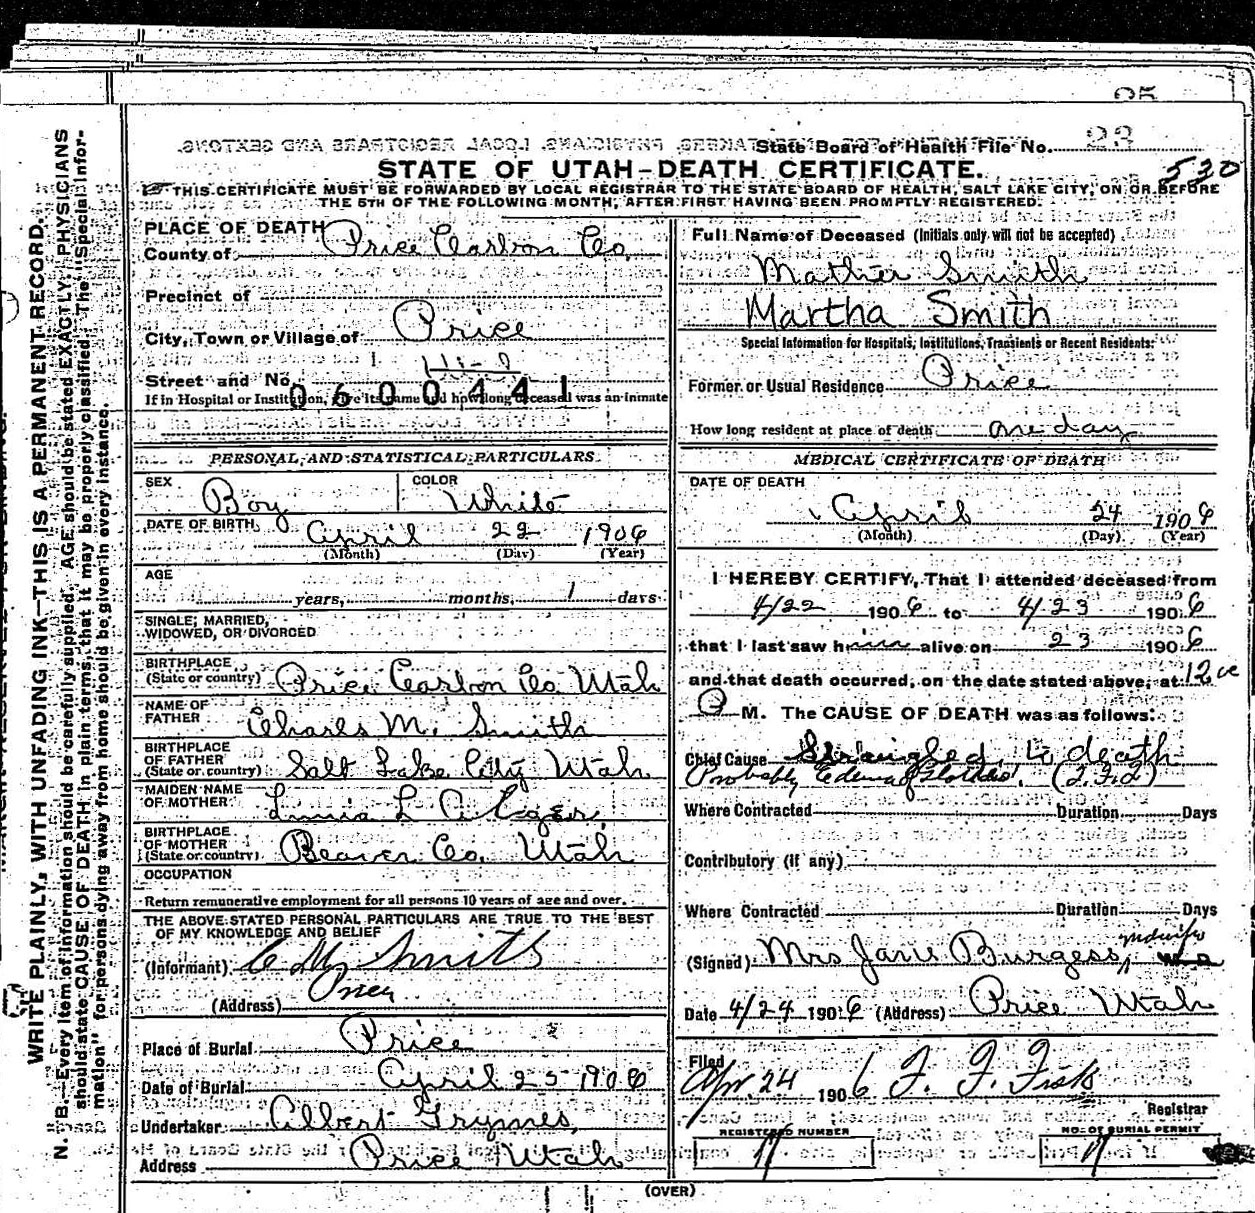 25
State Board of Health File No. 23
STATE OF UTAH-DEATH CERTIFICATE. 530
THIS CERTIFICATE MUST BE FORWARDED BY LOCAL REGISTRAR TO THE STATE BOARD OF HEALTH, SALT LAKE CITY, ON OR BEFORE
THE 5TH OF THE FOLLOWING MONTH, AFTER FIRST HAVING BEEN PROMPTLY REGISTERED.
WRITE PLAINLY, WITH UNFADING INK—THIS IS A PERMANENT RECORD.
N. B.—Every item of information should be carefully supplied. AGE should be stated EXACTLY. PHYSICIANS
should state CAUSE OF DEATH in plain terms, that it may be properly classified. The "Special Infor-
mation" for persons dying away from home should be given in every instance.
PLACE OF DEATH
County of Price Carbon Co.
Precinct of
City, Town or Village of Price
Street and No.
0600441
If in Hospital or Institution, give its name and how long deceased was an inmate
PERSONAL AND STATISTICAL PARTICULARS.
SEX Boy COLOR White
DATE OF BIRTH April 22 1906
(Month) (Day) (Year)
AGE
years, months, 1 days
SINGLE, MARRIED,
WIDOWED, OR DIVORCED
BIRTHPLACE
(State or country) Price Carbon Co Utah
NAME OF
FATHER Charls M. Smith
BIRTHPLACE
OF FATHER
(State or country) Salt Lake City Utah
MAIDEN NAME
OF MOTHER
BIRTHPLACE
OF MOTHER
(State or country) Beaver Co. Utah
OCCUPATION
Return remunerative employment for all persons 10 years of age and over.
THE ABOVE STATED PERSONAL PARTICULARS ARE TRUE TO THE BEST
OF MY KNOWLEDGE AND BELIEF
(Informant) C M Smith
(Address) Price
Place of Burial Price
Date of Burial April 25 1906
Undertaker Albert Grymes,
Address Price Utah
Full Name of Deceased (Initials only will not be accepted)
Mather Smith
Martha Smith
Special Information for Hospitals, Institutions, Transients or Recent Residents:
Former or Usual Residence Price
How long resident at place of death one day
MEDICAL CERTIFICATE OF DEATH
DATE OF DEATH
April 24 1906
(Month) (Day) (Year)
I HEREBY CERTIFY, That I attended deceased from
4/22 1906 to 4/23 1906
that I last saw him alive on 23 1906
and that death occurred, on the date stated above, at 12
M. The CAUSE OF DEATH was as follows:
Chief Cause Strangled to death
Probably Edema
Where Contracted Duration Days
Contributory (if any)
Where Contracted Duration Days
(Signed) Mrs Jane Burgess, midwife
Date 4/24 1906 (Address) Price Utah
Filed
Apr. 24 1906 F. F. Fisk
Registrar
REGISTERED NUMBER NO. OF BURIAL PERMIT
11 11
(OVER)